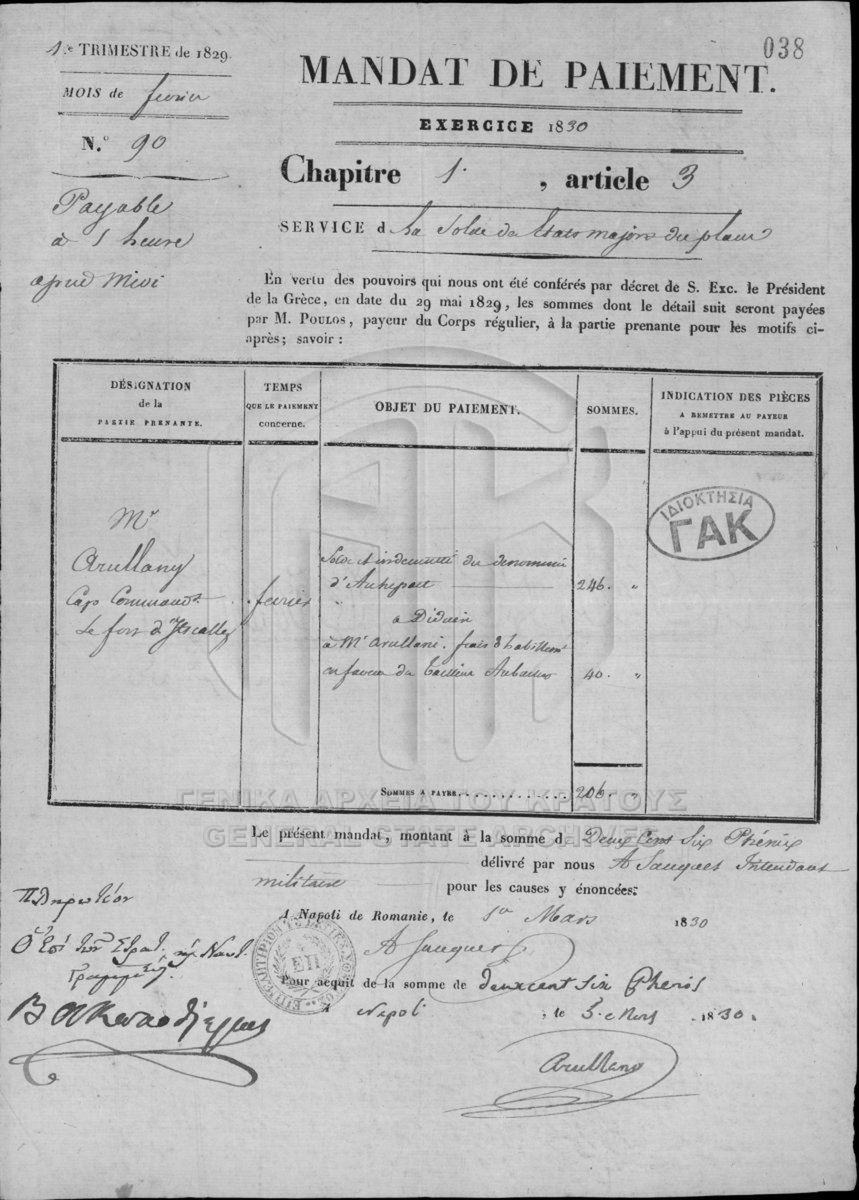 038
1.er TRIMESTRE de 1829.
MOIS de fevrier
N.° 90
Payable
à 1 heure
après Midi
MANDAT DE PAIEMENT.
EXERCICE 1830
Chapitre 1. , article 3
SERVICE d la Solde des Etats majors des places
En vertu des pouvoirs qui nous ont été conférés par décret de S. Exc. le Président
de la Grèce, en date du 29 mai 1829, les sommes dont le détail suit seront payées
par M. POULOS, payeur du Corps régulier, à la partie prenante pour les motifs ci-
après; savoir :
DÉSIGNATION
de la
PARTIE PRENANTE.
TEMPS
QUE LE PAIEMENT
concerne.
OBJET DU PAIEMENT.
SOMMES.
INDICATION DES PIÈCES
A REMETTRE AU PAYEUR
à l'appui du présent mandat.
ΙΔΙΟΚΤΗΣΙΑ
ΓΑΚ
Mr
Arullany
Cap Command.t
Le fort d'
fevrier
Solde et indemnité du denommé
d'Autrepart 246. "
à Déduire
à Mr Arullani. frais d'habillemt
en faveur du tailleur 40. "
SOMMES A PAYER............ 206. "
ΓΕΝΙΚΑ ΑΡΧΕΙΑ ΤΟΥ ΚΡΑΤΟΥΣ
GENERAL STATE ARCHIVES
Le présent mandat, montant à la somme d Deux Cens Six Phénix
délivré par nous A Sauquet Intendant
militaire pour les causes y énoncées:
A Napoli de Romanie, le 1er Mars 1830
Πληρωτέον
Ὁ ἐπὶ τῶν Στρατ. Ναυτ.
Γραμματεύς
A Sauquet
ΕΠ
Pour acquit de la somme de deux cent six Phenix
A Napoli le 3. Mars 1830.
Arullano